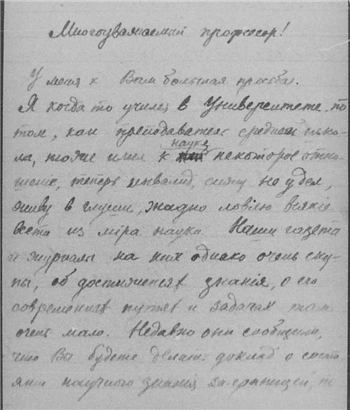 Многоуважаемый профессор!
У меня к Вам большая просьба.
Я когда то учился в Университете, по
том, как преподаватель средней шко-
ла, тоже имел к науке некоторое отно
шение, теперь инвалид, сижу не у дел,
живу в глуши, жадно ловлю всякие
вести из міра науки. Наши газеты
и журналы на них однако очень ску-
пы, об достижениях знанія, о его
современных путях и задачах там
очень мало. Недавно они сообщили,
что Вы будете делать доклад о состо
янии научного знания заграницей,